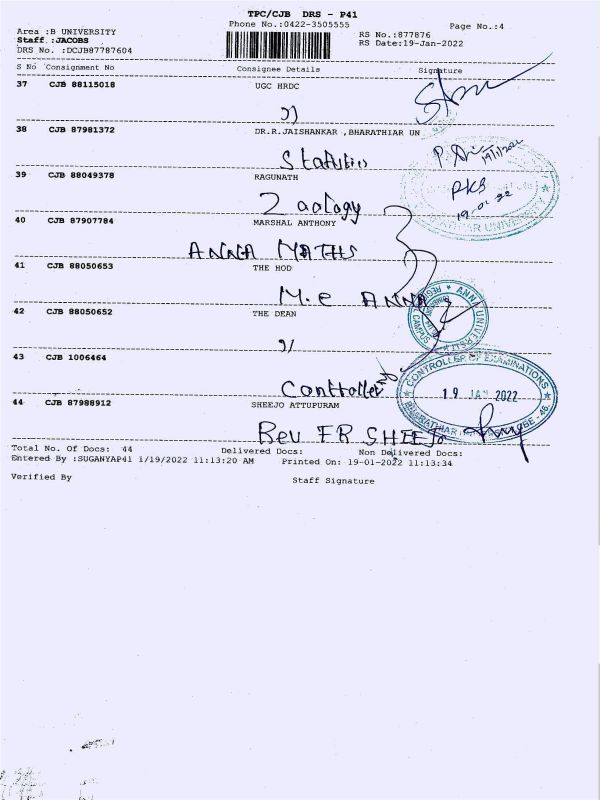 TPC/CJB DRS - P41
Phone No.:0422-3505555
Page No.:4
Area :B UNIVERSITY
Staff :JACOBS
DRS No. :DCJB87787604
RS No.:877876
RS Date:19-Jan-2022
S No Consignment No Consignee Details Signature
37 CJB 88115018 UGC HRDC
38 CJB 87981372 DR.R.JAISHANKAR ,BHARATHIAR UN
Statistics
P.
19/1/2022
39 CJB 88049378 RAGUNATH
Zoology
PKB
19.01.22
40 CJB 87907784 MARSHAL ANTHONY
ANNA MATHS
41 CJB 88050653 THE HOD
M.e ANNA
42 CJB 88050652 THE DEAN
43 CJB 1006464
Controller
CONTROLLER OF EXAMINATIONS
19 JAN 2022
44 CJB 87988912 SHEEJO ATTUPURAM
Rev FR SHEEJo
Total No. Of Docs: 44 Delivered Docs: Non Delivered Docs:
Entered By :SUGANYAP41 1/19/2022 11:13:20 AM Printed On: 19-01-2022 11:13:34
Verified By Staff Signature